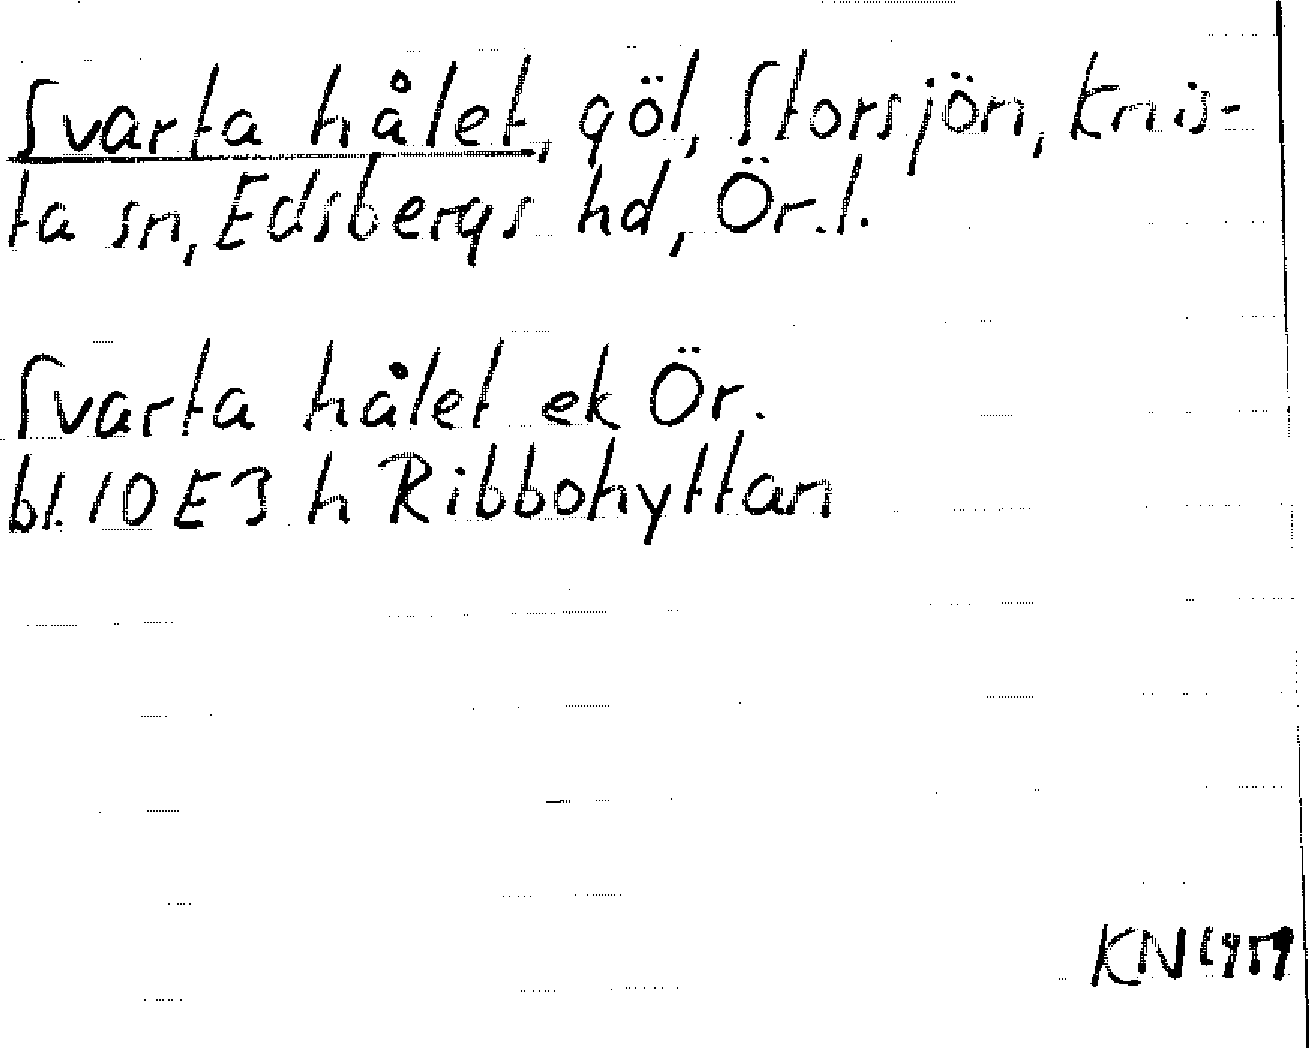 Svarta hålet, göl, Storsjön, Knis-
ta sn, Edsbergs hd, Ör.l.
Svarta hålet ek Ör.
bl. 10 E3 h Ribbohyttan
KN